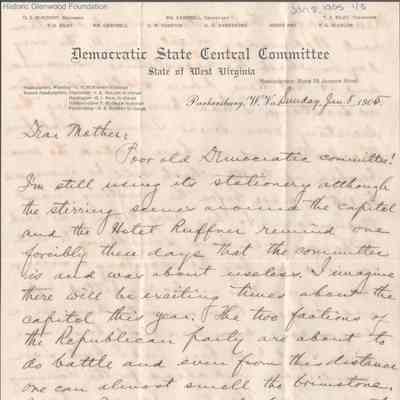 Historic Glenwood Foundation
Jan 8, 1905 1/5
Democratic State Central Committee
State of West Virginia
Parkersburg, W. Va. Sunday, Jan. 8, 1905.
Dear Mother:
Poor old Democratic committee!
I'm still using its stationery although
the stirring scenes around the capitol
and the Hotel Ruffner remind one
forcibly these days that the committee
is and was about useless. I imagine
there will be exciting times about the
capitol this year. The two factions of
the Republican party are about to
do battle and even from this distance
one can almost smell the brimstone.